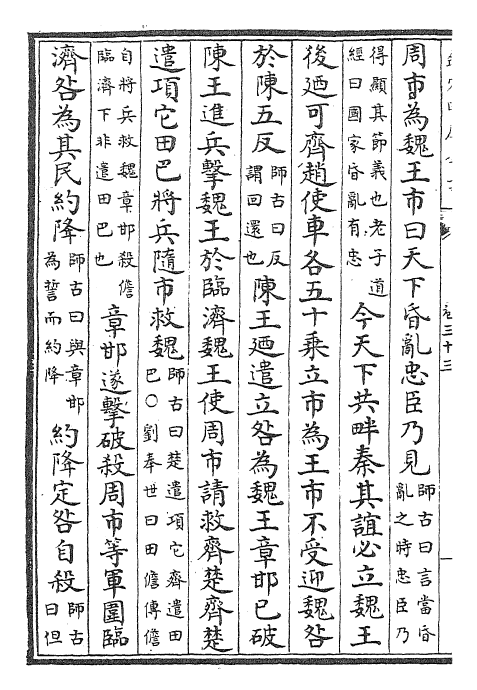 周市為魏王市曰天下昏亂忠臣乃見師古曰言當昏亂之時忠臣乃
得顯其節義也老子道經曰國家昏亂有忠今天下共畔秦其誼必立魏王
後廼可齊趙使車各五十乘立市為王市不受迎魏咎
於陳五反師古曰反謂回還也陳王廼遣立咎為魏王章邯已破
陳王進兵擊魏王於臨濟魏王使周市請救齊楚齊楚
遣項它田巴將兵隨市救魏師古曰楚遣項它齊遣田巴○劉奉世曰田儋傳儋
自將兵救魏章邯殺儋臨濟下非遣田巴也章邯遂擊破殺周市等軍圍臨
濟咎為其民約降師古曰與章邯為誓而約降約降定咎自殺師古曰但